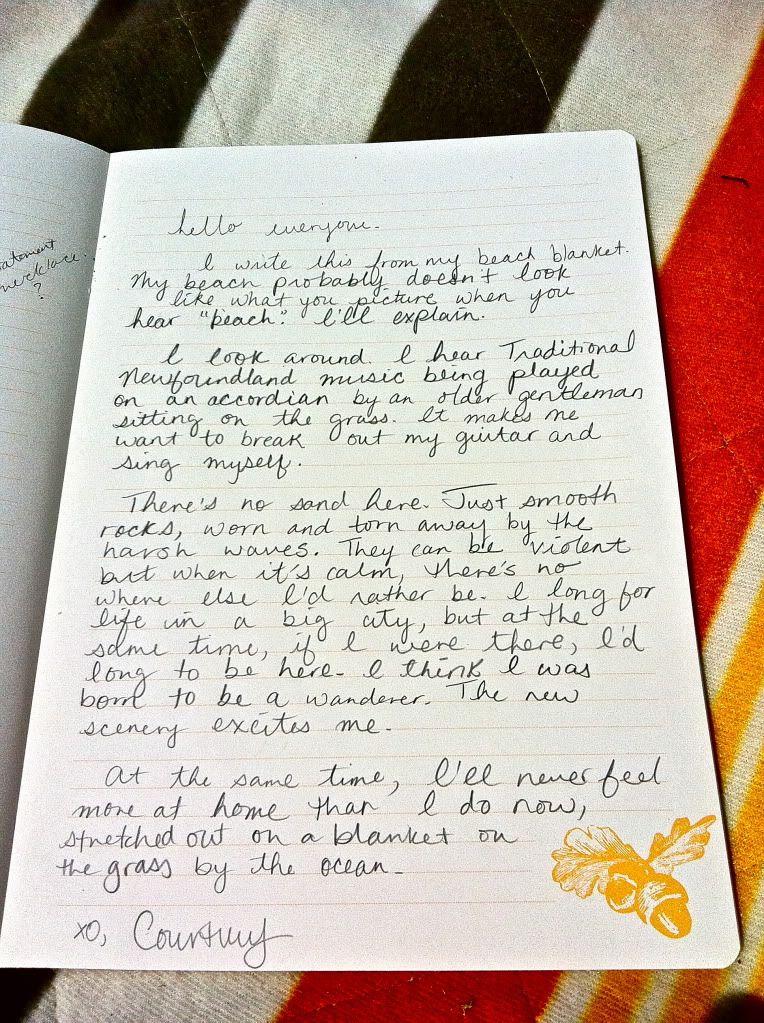 atement
necklace.
?
hello everyone.
I write this from my beach blanket.
My beach probably doesn't look
like what you picture when you
hear "beach." I'll explain.
I look around. I hear Traditional
Newfoundland music being played
on an accordian by an older gentleman
sitting on the grass. It makes me
want to break out my guitar and
sing myself.
There's no sand here. Just smooth
rocks, worn and torn away by the
harsh waves. They can be violent
but when it's calm, there's no
where else I'd rather be. I long for
life in a big city, but at the
same time, if I were there, I'd
long to be here. I think I was
born to be a wanderer. The new
scenery excites me.
At the same time, I'll never feel
more at home than I do now,
stretched out on a blanket on
the grass by the ocean.
xo, Courtney